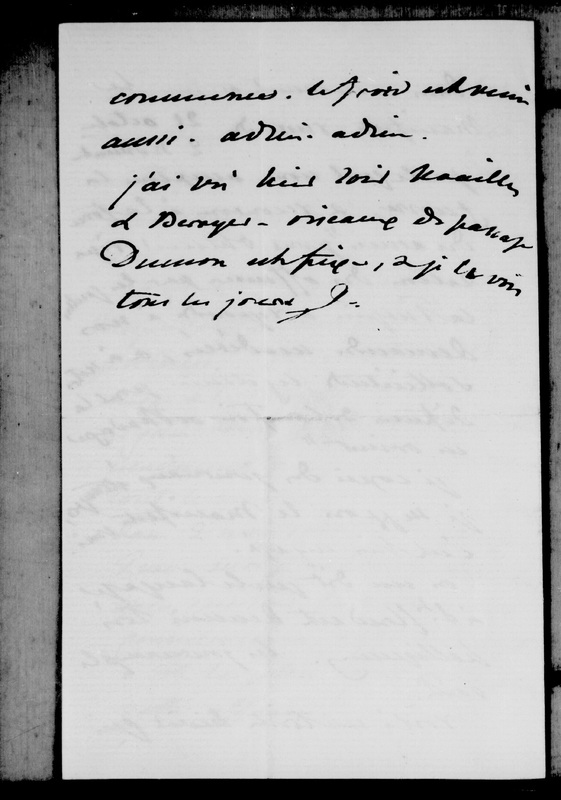 commence. le froid est venu
aussi. adieu. adieu.
j'ai vu hier soir Noailles
& Berryer - oiseaux de passage
Dumon est fixé, & je le vois
tous les jours.